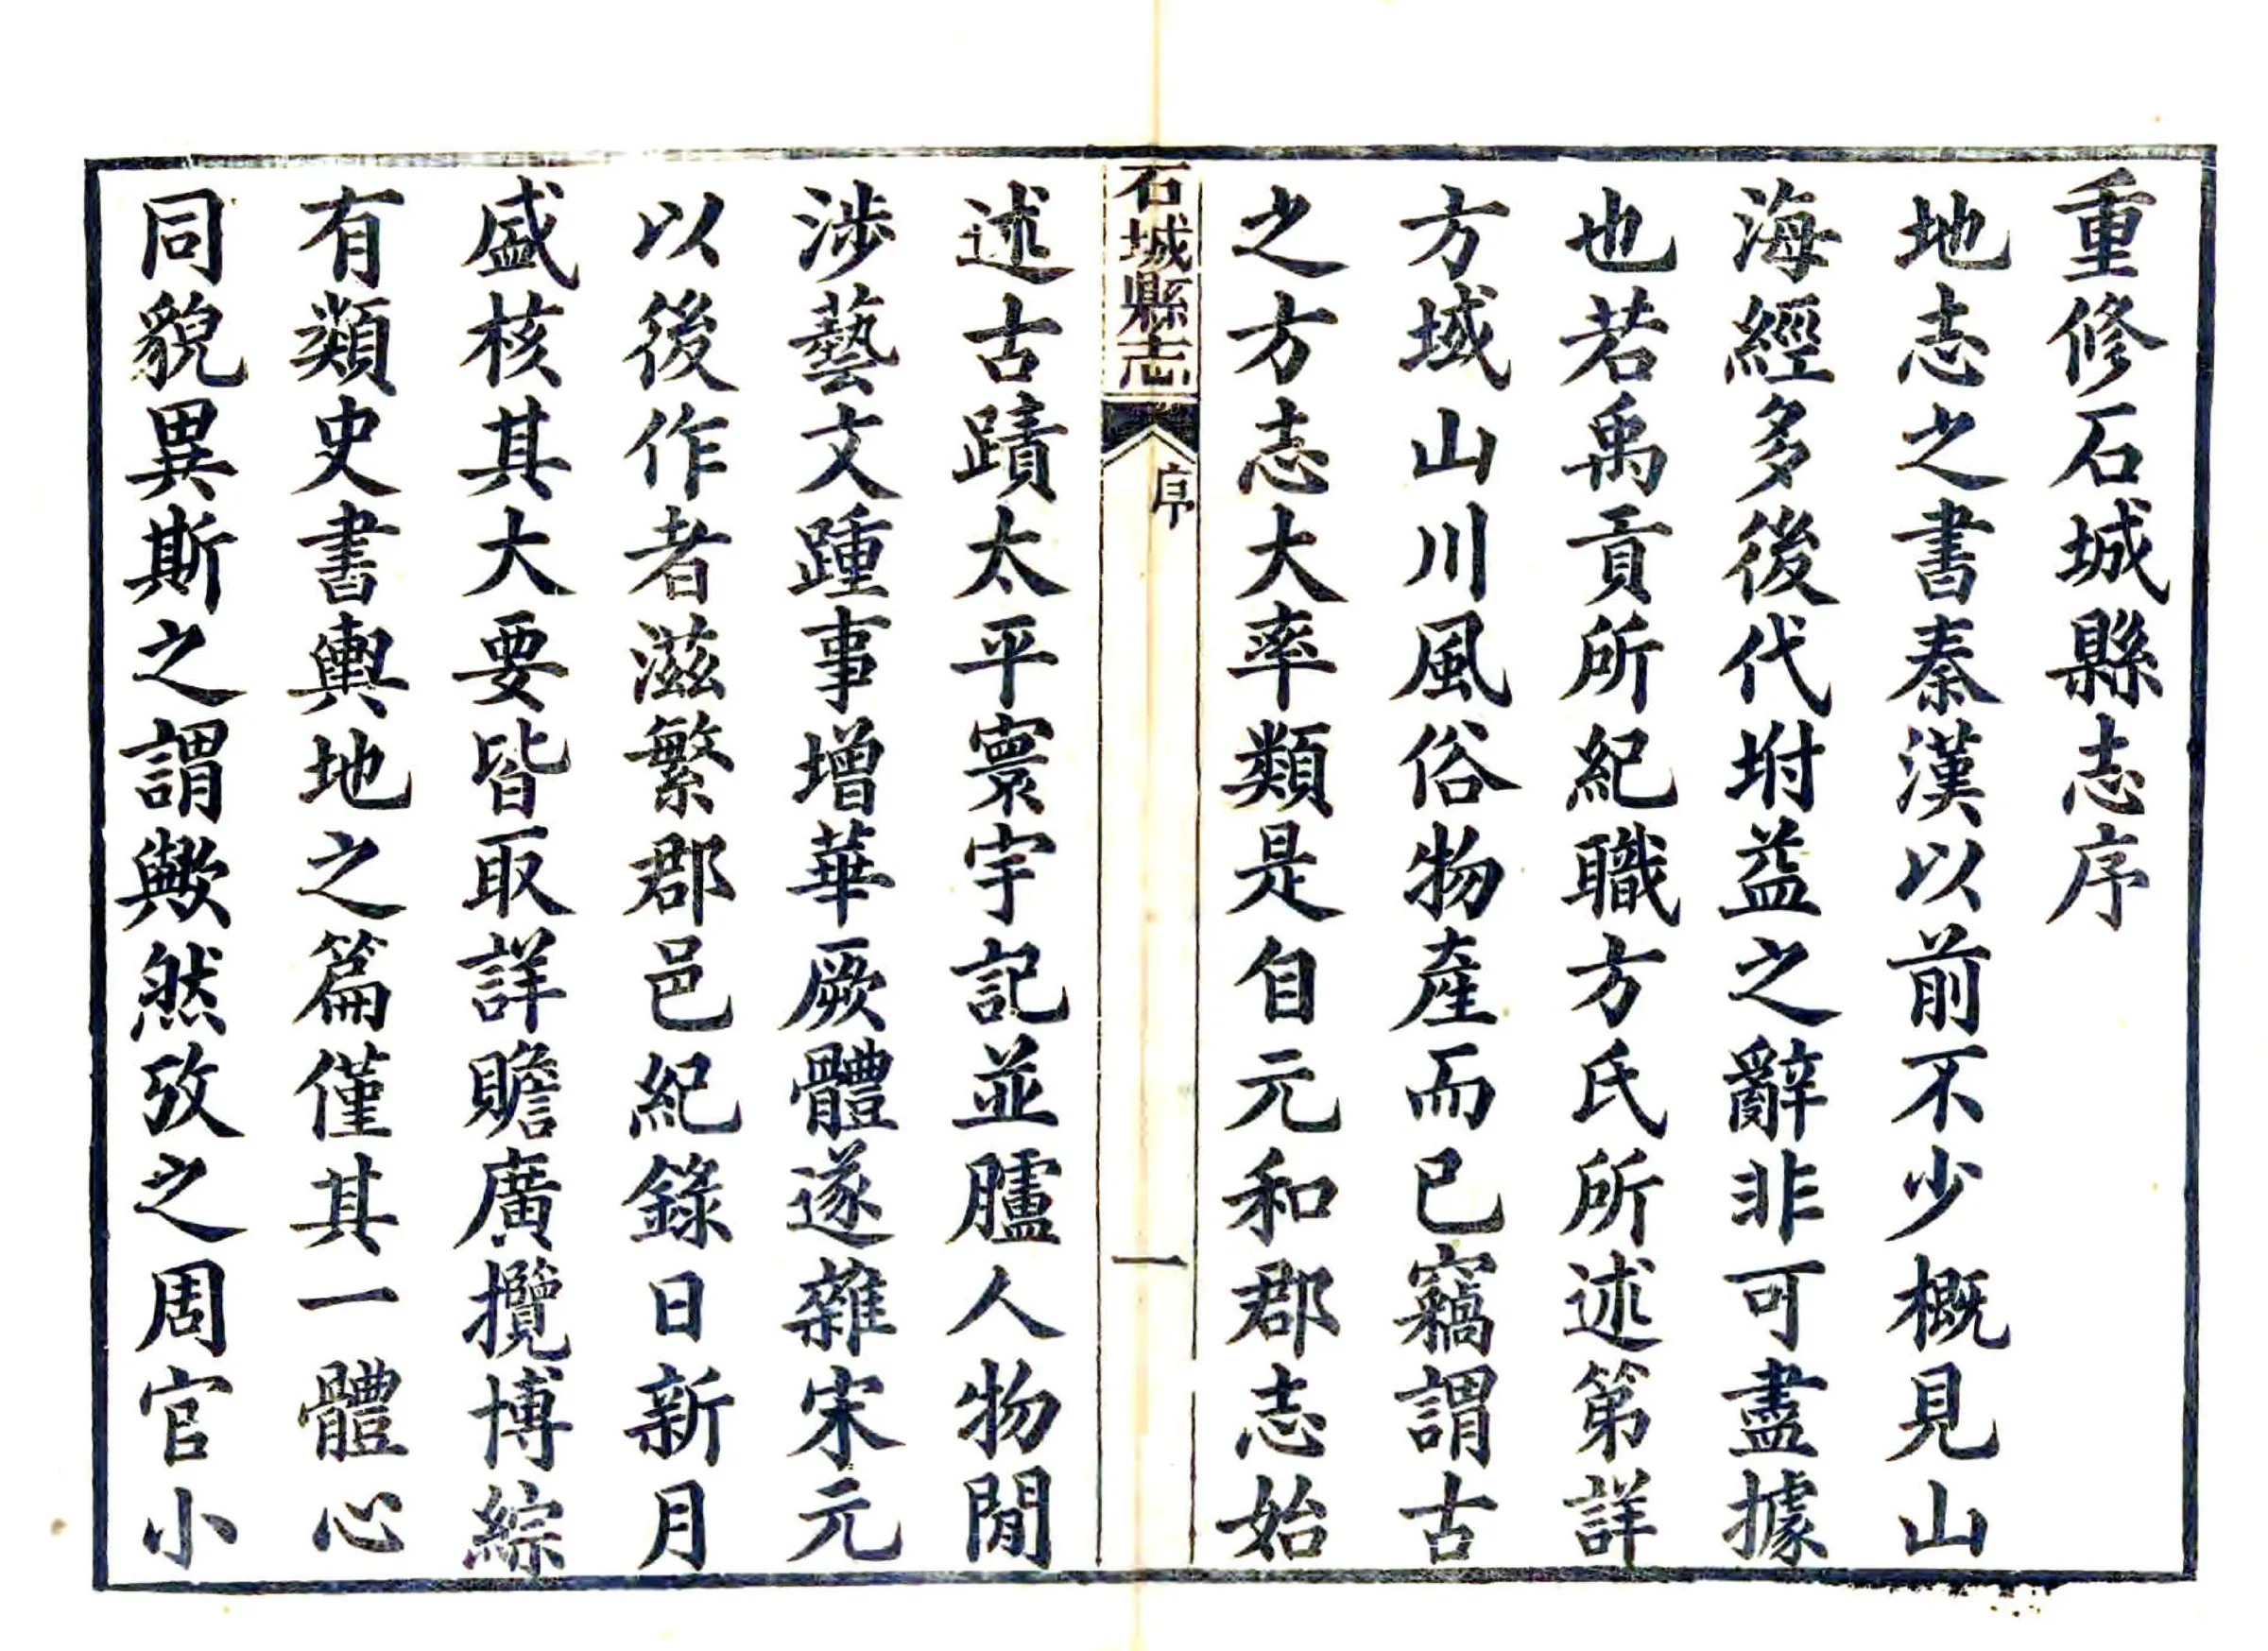 重修石城縣志序
地志之書秦漢以前不少概見山
海經多後代坿益之辭非可盡據
也若禹貢所紀職方氏所述第詳
方域山川風俗物產而已竊謂古
之方志大率類是自元和郡志始
石城縣志
序
一
述古蹟太平寰宇記並臚人物閒
涉藝文踵事增華厥體遂雜宋元
以後作者滋繁郡邑紀錄日新月
盛核其大要皆取詳贍廣攬博綜
有類史書輿地之篇僅其一體心
同貌異斯之謂歟然攷之周官小